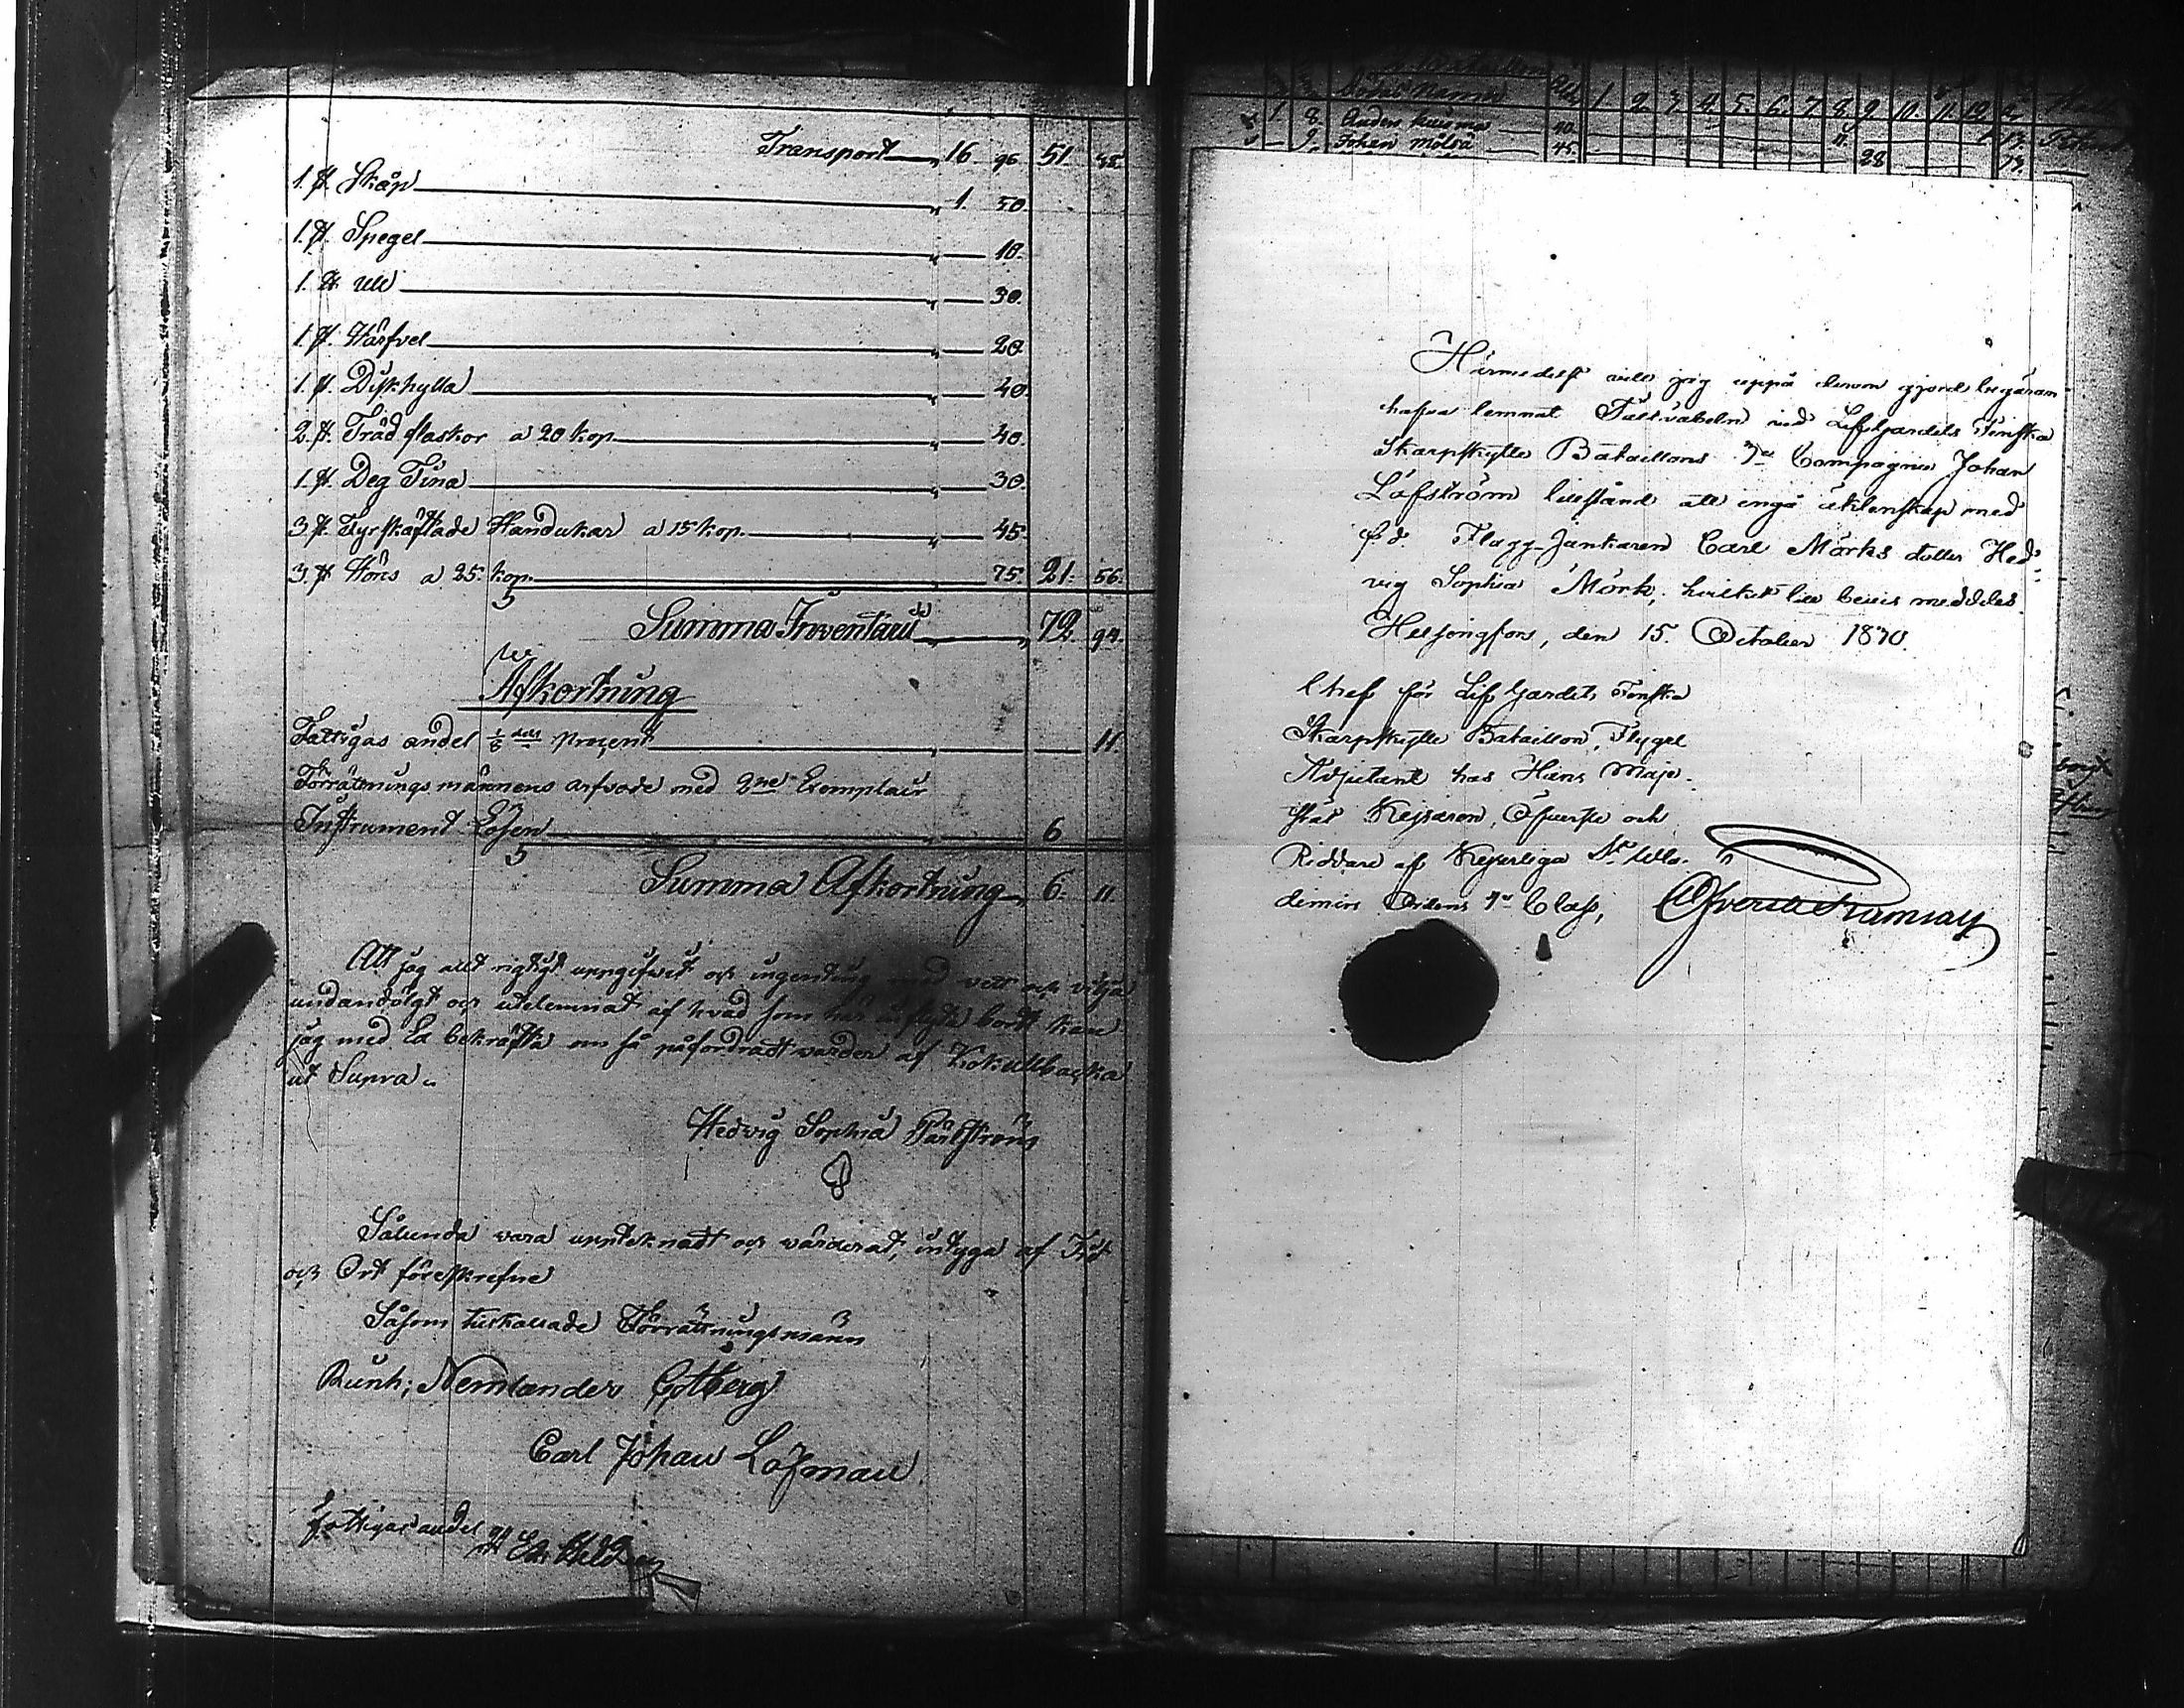 Transport 16 96 51 38
1. st. Skåp 1. 50.
1. st. Spegel 10.
1. st Ull 30.
1. st. Härfvel 20
1. st. Diskhylla 40
2. st. Träd flaskor a 20 kop. 40.
1. st. Deg Tina 30.
3 st. Fyrskaftade Handukar a 15 kop. 45
3. st Höns a 25. kop. 75. 21. 56.
Summa Inventarii 72. 94.
Afkortning
Fattigas andel 1/8 dels procent 11
Förrättnings männens arfvode med 2ne Exemplair
Instrument Lösen 6
Summa Afkortning 6. 11.
Att jag allt rigtigt uppgifvit och ingenting med vett och vilja
undandölgt och utelemnat af hvad som bordt kan
jag med Ed bekräfta om så påfordradt varder af Kokullbacka
ut Supra.
Hedvig Sophia Pärlström
Sålunda vara upptecknadt och värderat, intyga af Tid
och Ort föreskrefne
Såsom tillkallade Förrättningsmänn
Carl Johan Löfman
fattigas andel
Mödrens Namn 1 2 3 4 5 6 7 8 9 10 11 12
1. 8. Anders 40.
9. Johan Mölsä 45. 28
Härmedelst vill jag uppå derom gjord begäran
hafva lemnat Fältväbeln vid Lifgardets Finska
Skarpskytte Bataillons Compagnie Johan
Löfström tillstånd att ingå äktenskap med
f. d. Flagg-Junkaren Carl Mörks dotter Hed-
vig Sophia Mörk, hvilket till bevis meddelas.
Helsingfors, den 15. October 1870.
Chef för Lif Gardets Finska
Skarpskytte Bataillon, Flygel
Adjutant hos Hans Maje-
stät Kejsaren, Öfverste och
Riddare af Kejserliga St Wla-
dimirs Ordens Class,
Ramsay